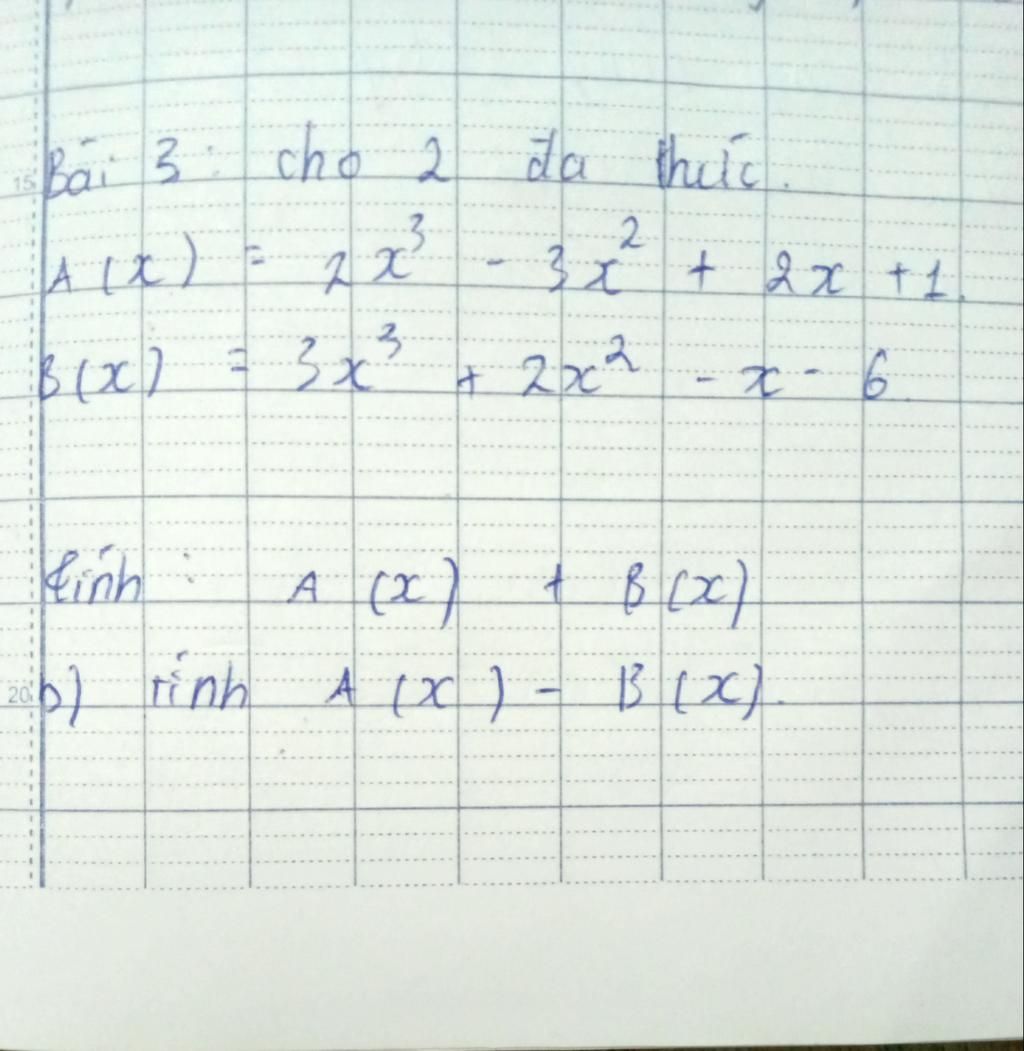 15 Bài 3: cho 2 đa thức.
A(x) = 2x³ - 3x² + 2x + 1.
B(x) = 3x³ + 2x² - x - 6
tính: A(x) + B(x)
20 b) tính A(x) - B(x).